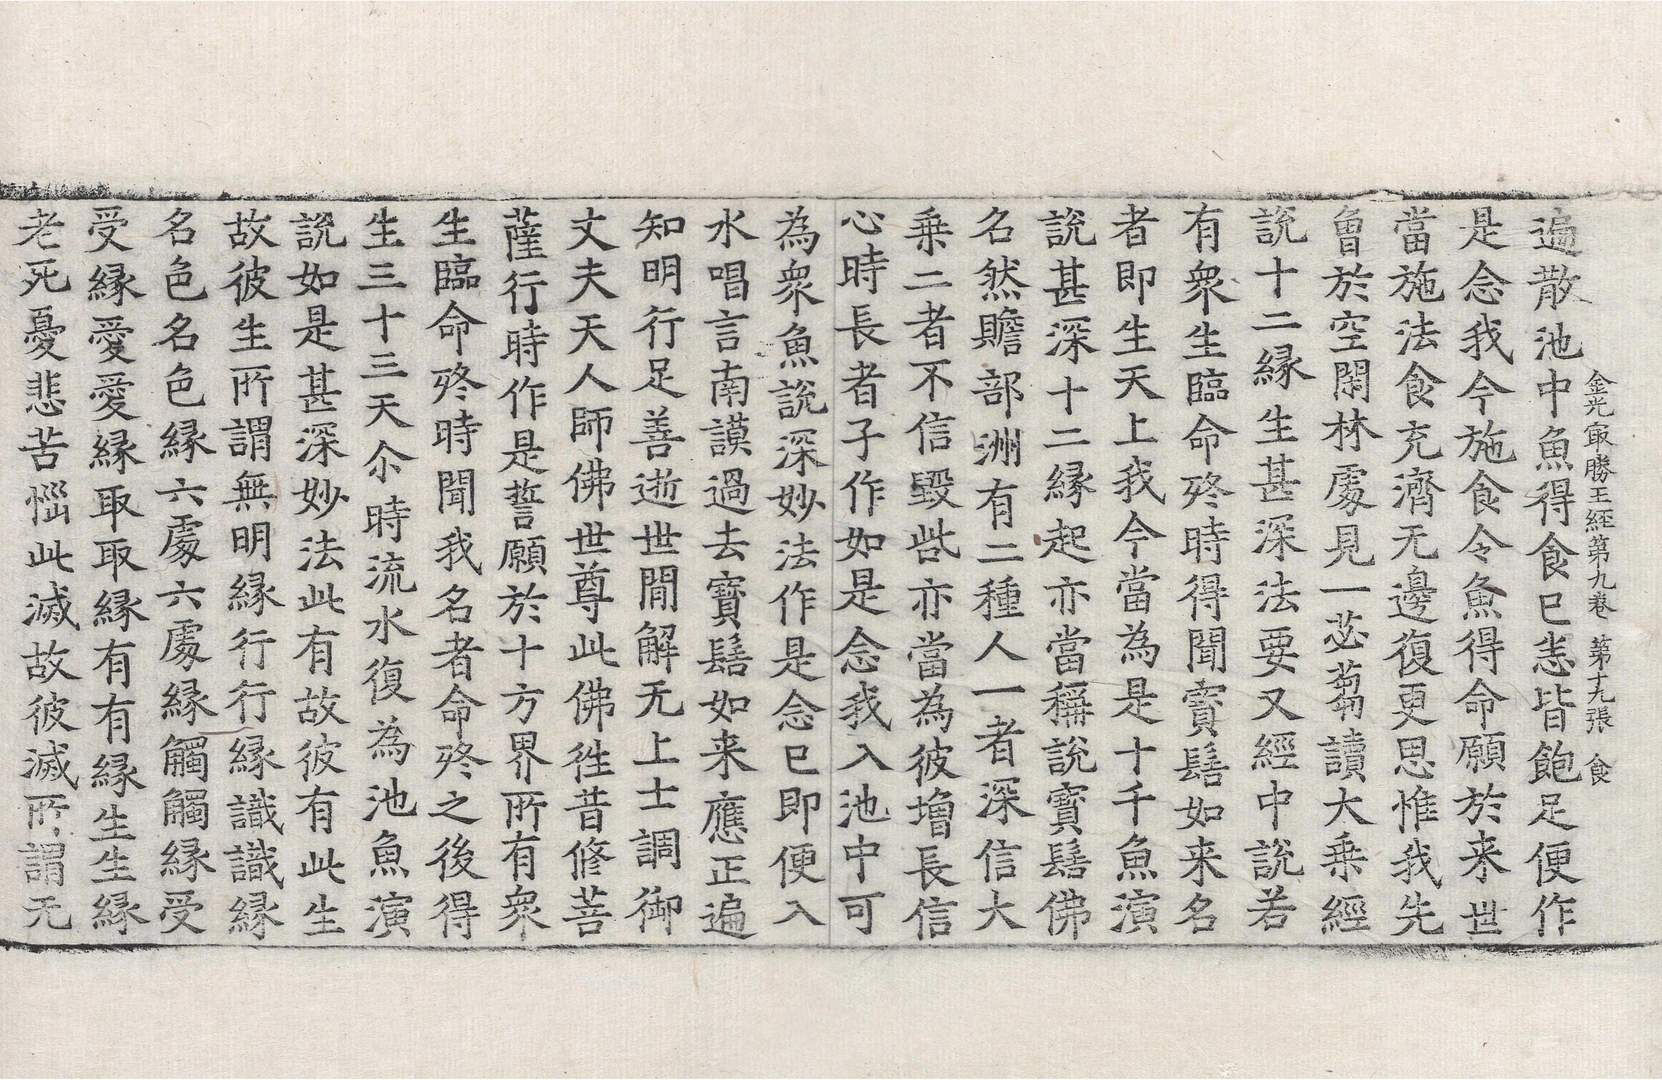 金光㝡勝王經第九卷 第十九張 食
遍散池中魚得食已悉皆飽足便作
是念我今施食令魚得命願於來世
當施法食充濟无邊復更思惟我先
曾於空閑林處見一苾蒭讀大乗經
說十二緣生甚深法要又經中說若
有衆生臨命終時得聞寶髻如来名
者即生天上我今當為是十千魚演
說甚深十二緣起亦當稱說寶髻佛
名然贍部洲有二種人一者深信大
乗二者不信毀呰亦當為彼增長信
心時長者子作如是念我入池中可
為衆魚說深妙法作是念已即便入
水唱言南謨過去寶髻如来應正遍
知明行足善逝世間解无上士調御
丈夫天人師佛世尊此佛往昔修菩
薩行時作是誓願於十方界所有衆
生臨命終時聞我名者命終之後得
生三十三天尒時流水復為池魚演
說如是甚深妙法此有故彼有此生
故彼生所謂無明緣行行緣識識緣
名色名色緣六處六處緣觸觸緣受
受緣愛愛緣取取緣有有緣生生緣
老死憂悲苦惱此滅故彼滅所謂无